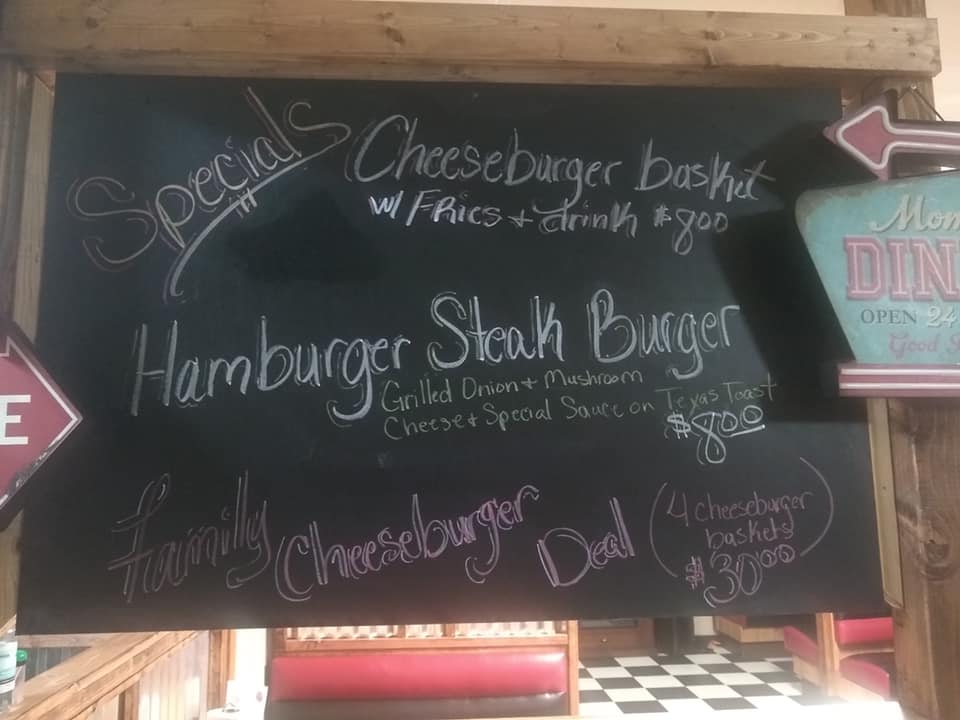 Specials
Cheeseburger basket
w/ Fries + drink $800
Hamburger Steak Burger
Grilled Onion + Mushroom
Cheese + Special Sauce on Texas Toast
$800
Familly Cheeseburger Deal
(4 cheeseburger
baskets
$3000)
Mom
DIN
OPEN 24
Good
E